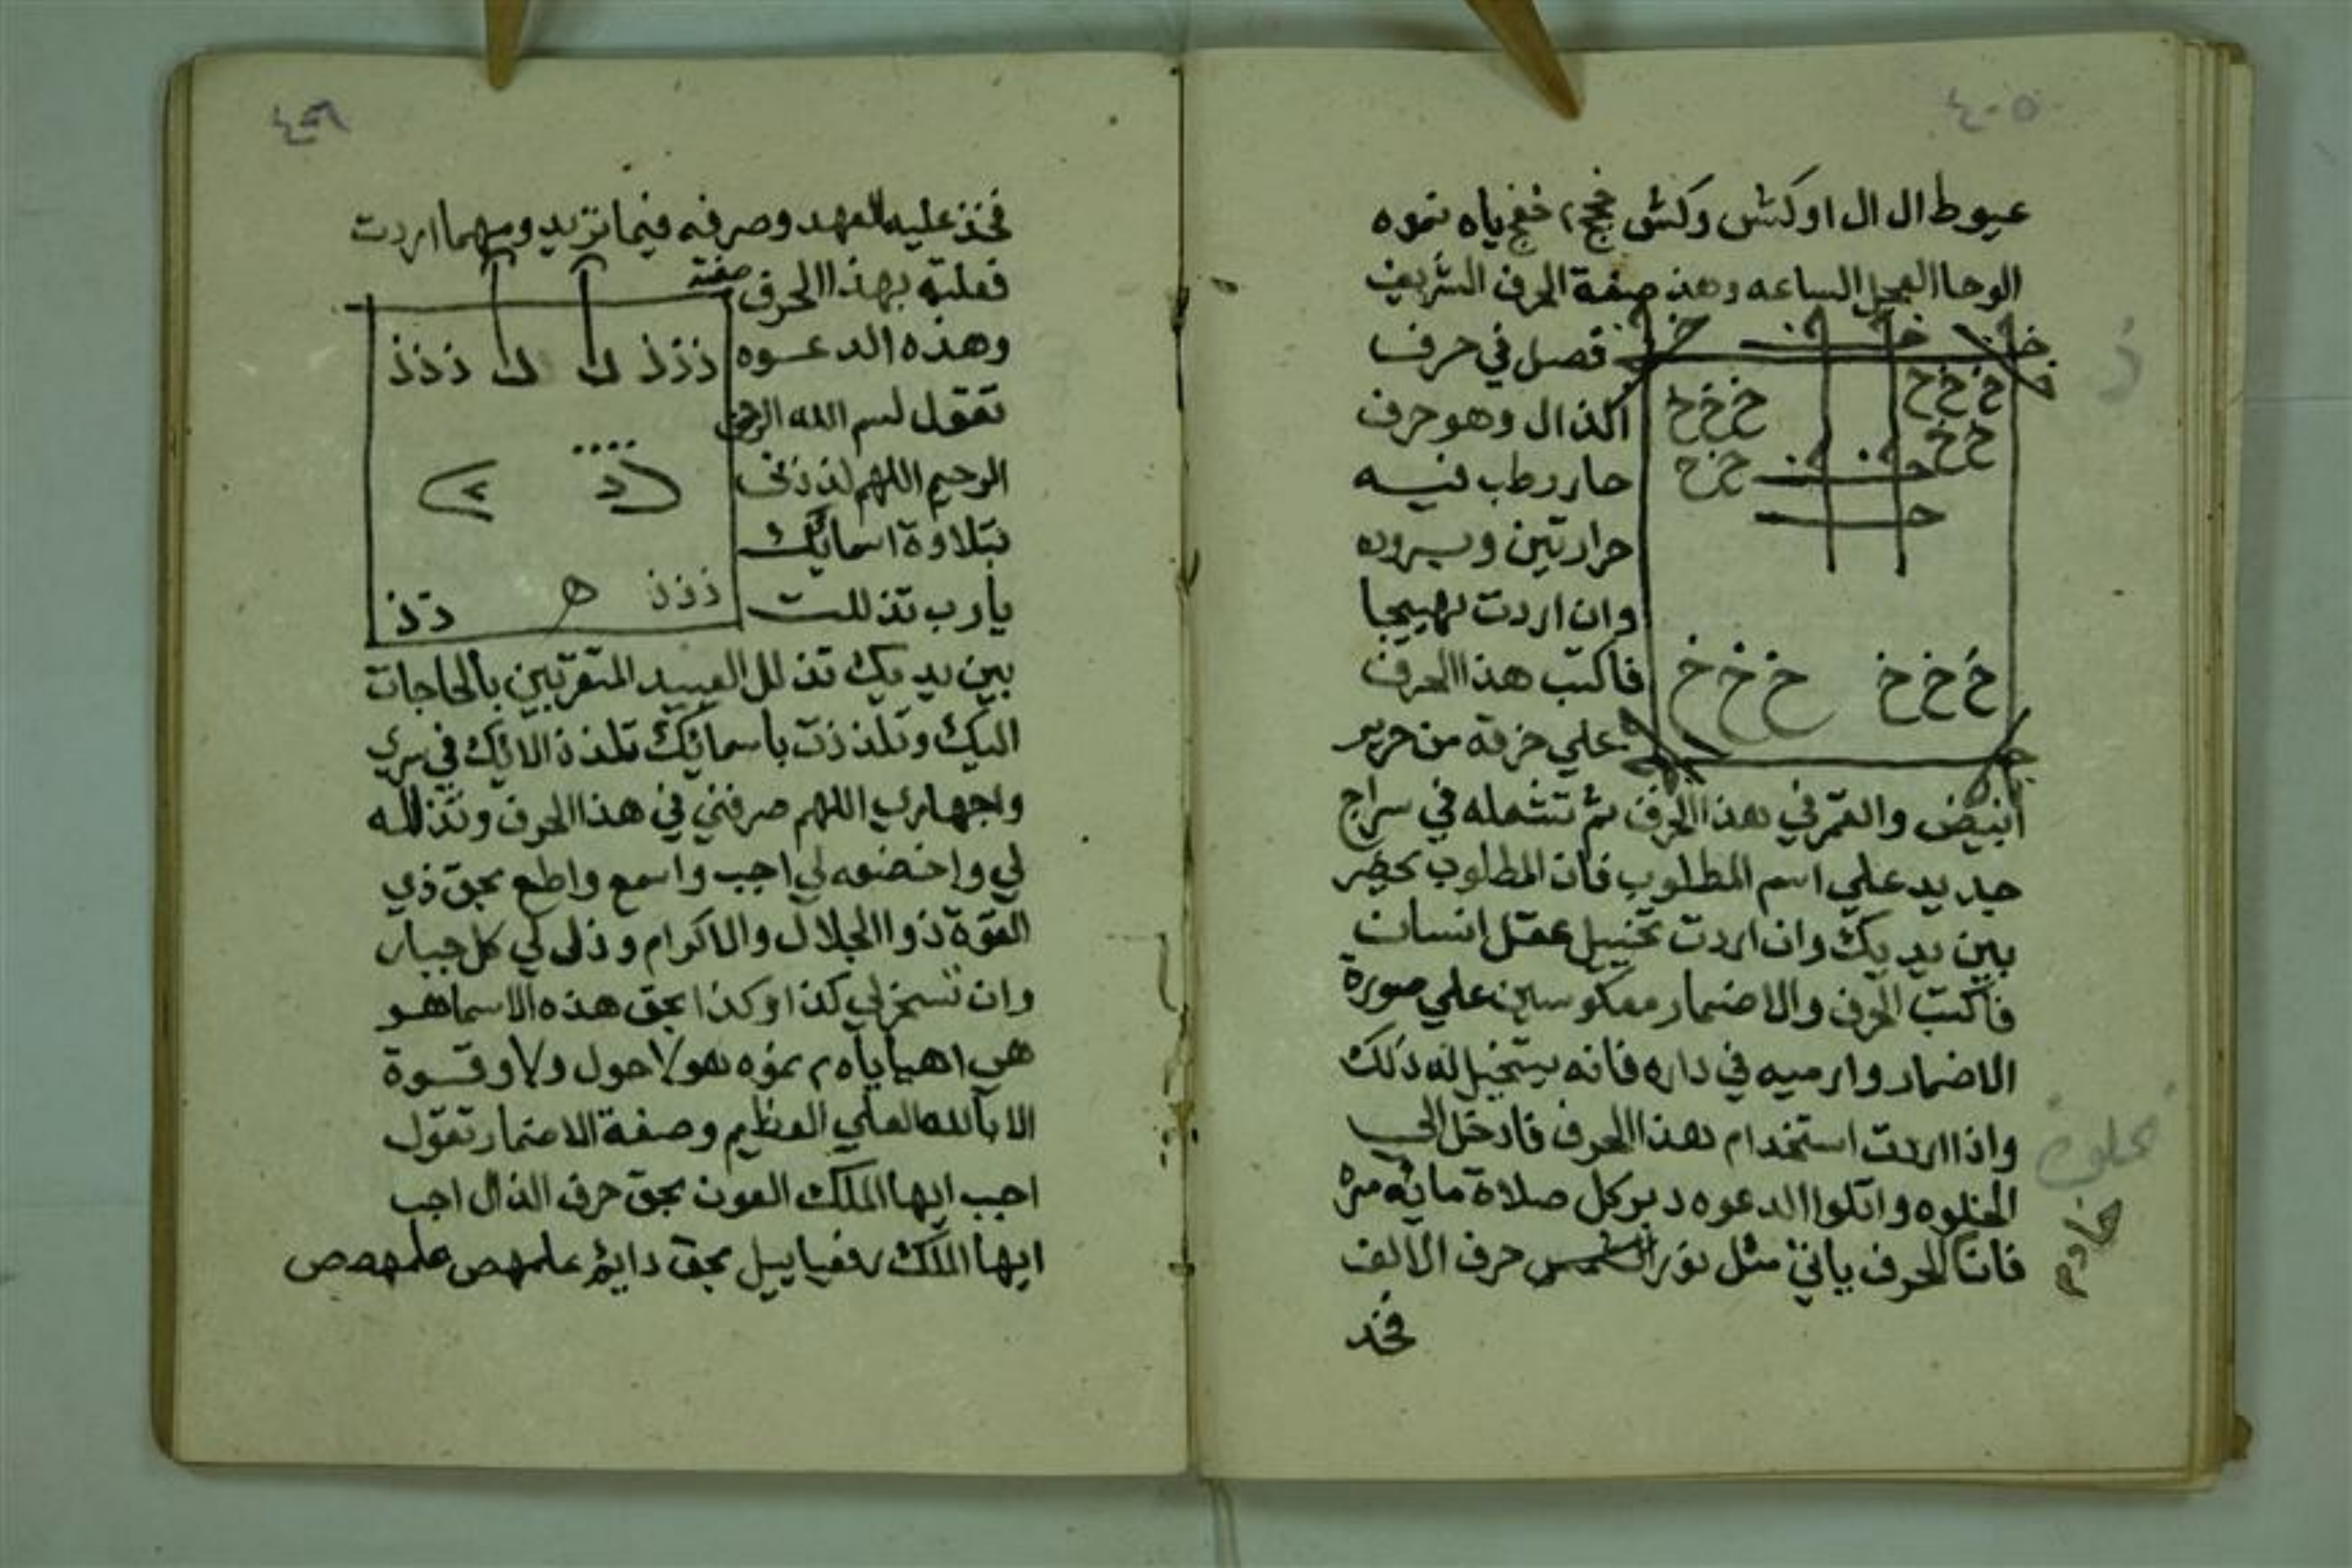 ٤٠٥
عيوط ال ال اوكش وكش خفج ياه نموه
الوحا العجل الساعه وهذه صفة الحرف الشريف
فصل في حرف
الذال وهو حرف
حار رطب فيه
حرارتين وبروده
وان اردت تهييجا
فاكتب هذا الحرف
علي خرقه من حرير
خ خ خ
خ خ خ
خ خ
خ خ
خ خ خ
خ خ خ
أبيض والقمر في هذا الحرف ثم تشعله في سراج
جديد علي اسم المطلوب فان المطلوب يحضر
بين يديك وان اردت تخبيل عقل انسان
فاكتب الحرف والاضمار معكوسين علي صورة
الاضمار وارميه في داره فانه يتخبل له ذلك
واذا اردت استخدام هذا الحرف فادخل الي
الخلوه واتلوا الدعوه دبر كل صلاة مائه مره
فان الحرف ياتي مثل نور حرف الالف
فخذ
ذ
خادم
فخذ عليه العهد وصرفه فيما تزيد ومهما اردت
فعليه بهذا الحرف صفته
وهذه الدعوه
تقول بسم الله الرحمن
الرحيم اللهم
بتلاوة اسمائك
يارب تذللت
ذ ذ ذ
ذ ذ ذ
ذ ذ ذ
ه
ذ ذ
بين يديك تذلل العبيد المتقربين بالحاجات
اليك وتلذذت باسمائك تلذذ الائك في سري
واجهاري اللهم صرفني في هذا الحرف وتذلله
لي واخضعه لي اجب واسمع واطع بحق ذي
القوة ذو الجلال والاكرام وذلل لي كل جبار
وان تسخر لي كذا وكذا بحق هذه الاسما هو
هي اهيا ياه م نموه هو لا حول ولا وقوة
الا بالله العلي العظيم وصفة الاضمار تقول
اجب ايها الملك العون بحق حرف الذال اجب
ايها الملك رفعياييل بحق علمهص علمهصص